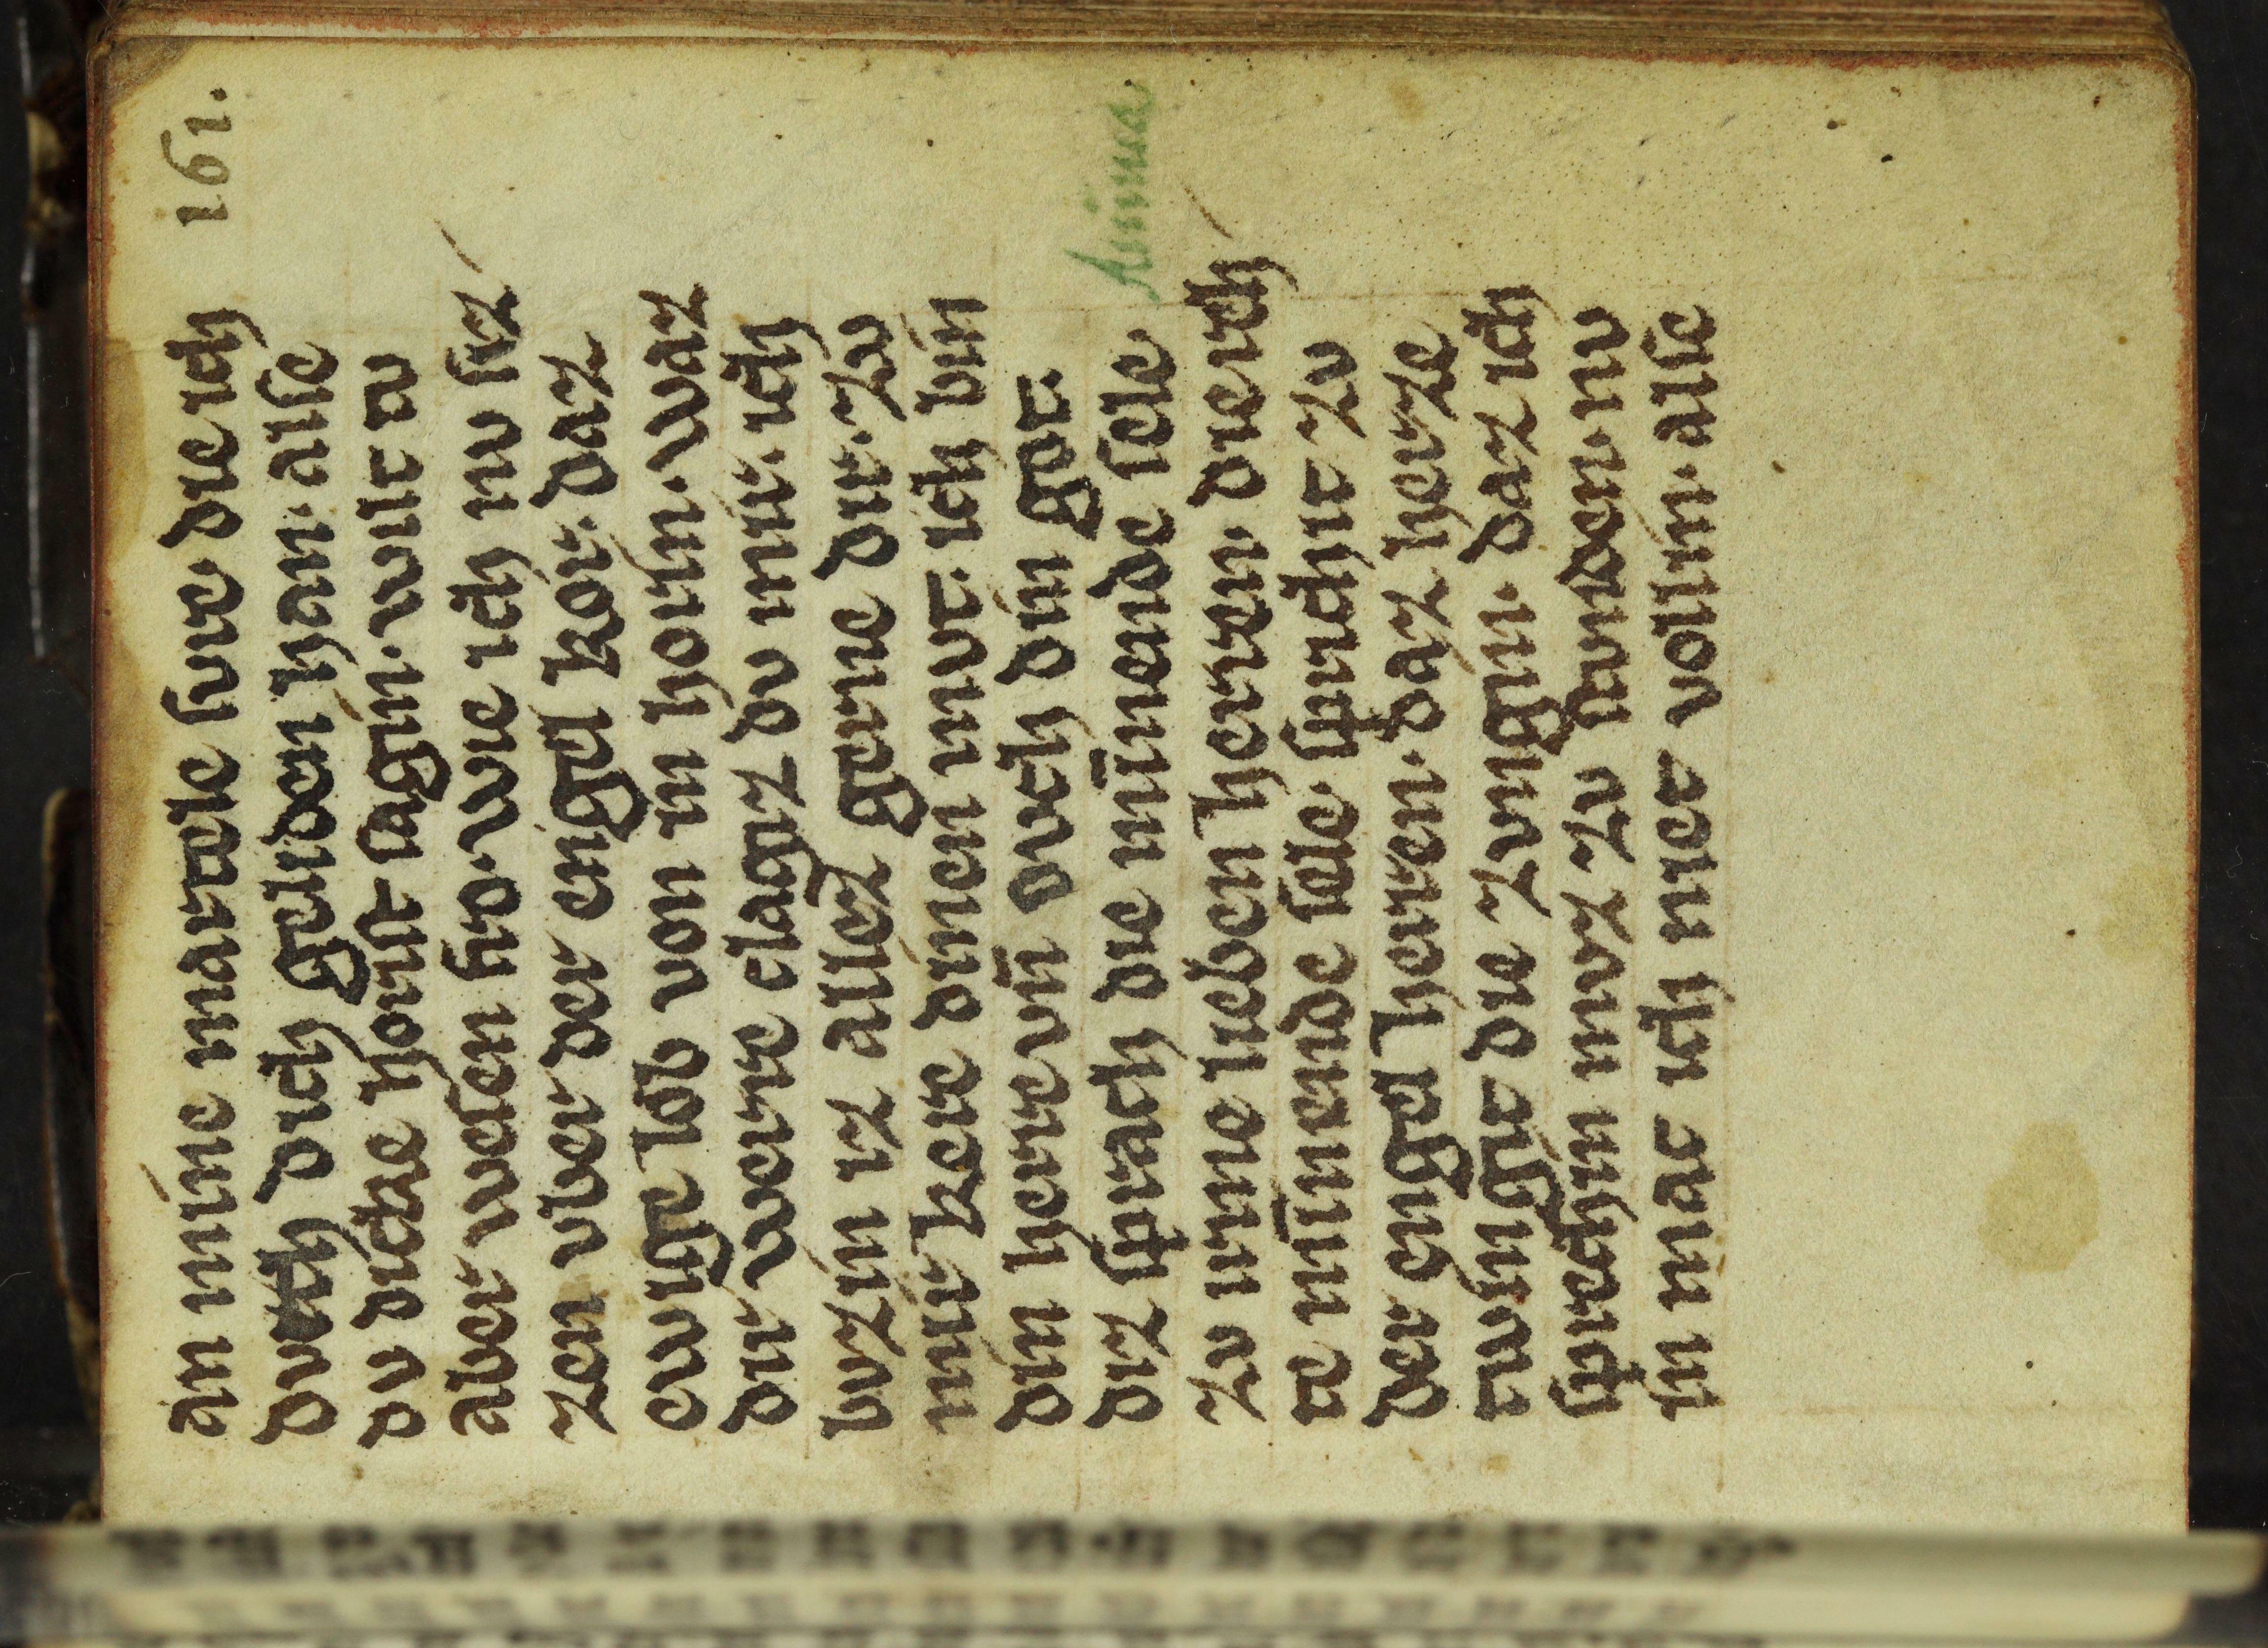 161.
an mine martele sure. die ich
durch dich geliden han. alse
du dicke horist sagin. wilt tu
aber wesen fro. wie ich nu siz
zen vber der engel kor. daz
ewige lob von in horin. waz
dir werre clagiz du mir. ich
buzin iz allez gerne dir. zu
mir kere dinen mut. ich bin
din herre vn̄ ouch din got.
diz sprach die minnende sele Anima
zu irme lieben herren. die rech
te min̄ende sele. sprichit zu
der engel herren. daz herze
twingit die zungin. daz ich
sprechin muz zu stunden. nu
in mac ich niet vollin. alse